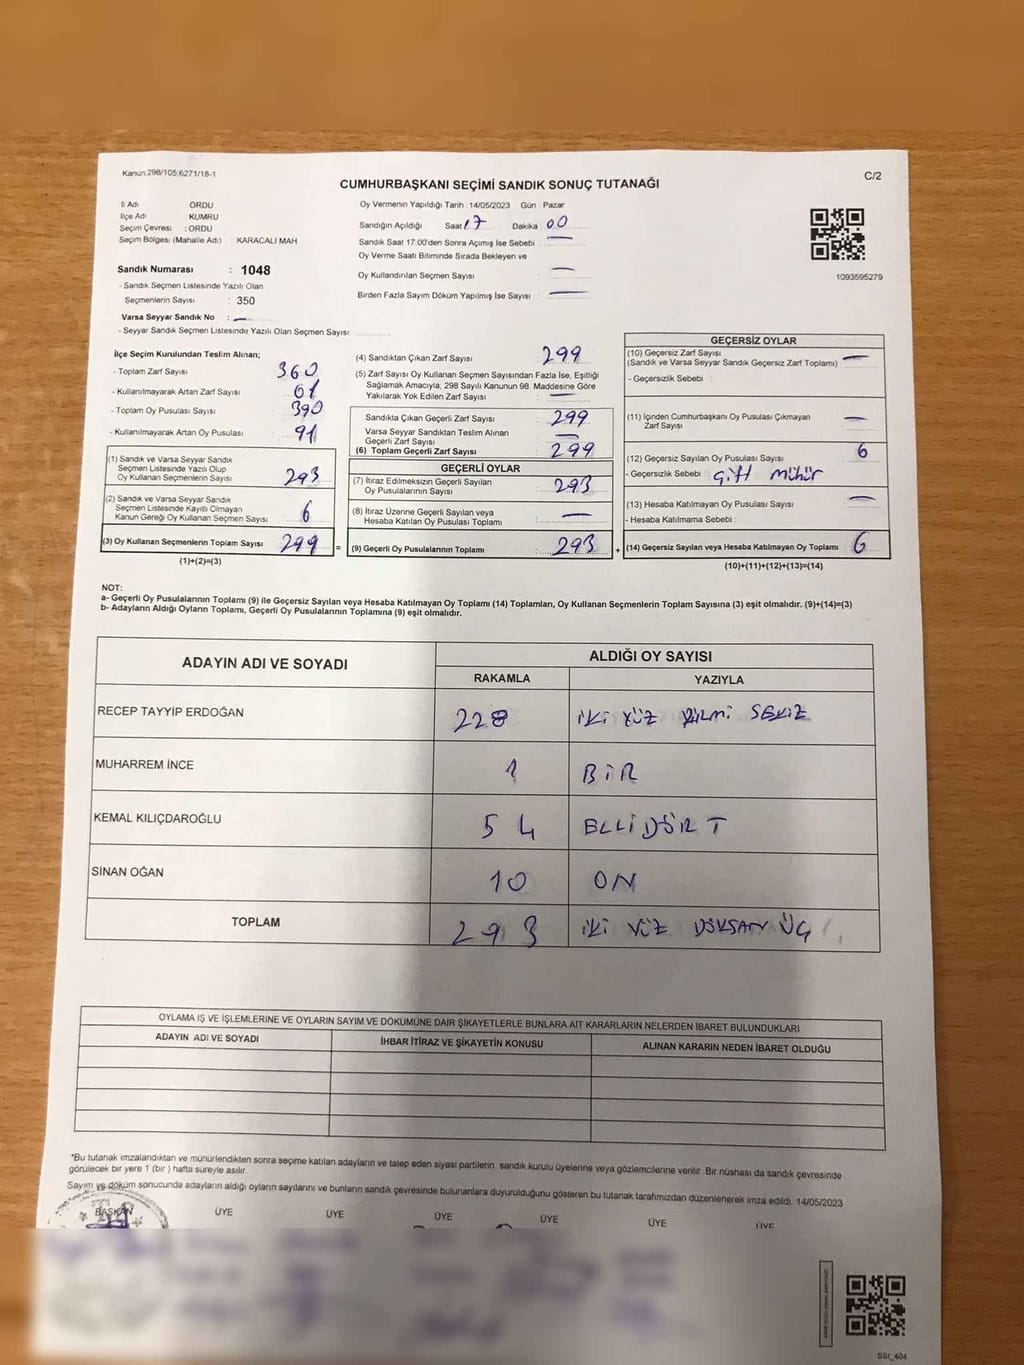 Kanun.298/105;6271/18-1
C/2
CUMHURBAŞKANI SEÇİMİ SANDIK SONUÇ TUTANAĞI
İl Adı ORDU
İlçe Adı KUMRU
Seçim Çevresi : ORDU
Seçim Bölgesi (Mahalle Adı) KARACALI MAH
Sandık Numarası : 1048
- Sandık Seçmen Listesinde Yazılı Olan
Seçmenlerin Sayısı : 350
Varsa Seyyar Sandık No : —
- Seyyar Sandık Seçmen Listesinde Yazılı Olan Seçmen Sayısı:
Oy Vermenin Yapıldığı Tarih : 14/05/2023 Gün : Pazar
Sandığın Açıldığı Saat 17 Dakika 00
Sandık Saat 17:00'den Sonra Açımış İse Sebebi : —
Oy Verme Saati Bitiminde Sırada Bekleyen ve
Oy Kullandırılan Seçmen Sayısı : —
Birden Fazla Sayım Döküm Yapılmış İse Sayısı : —
1093595279
İlçe Seçim Kurulundan Teslim Alınan;
- Toplam Zarf Sayısı : 360
- Kullanılmayarak Artan Zarf Sayısı : 61
- Toplam Oy Pusulası Sayısı : 390
- Kullanılmayarak Artan Oy Pusulası : 91
(1) Sandık ve Varsa Seyyar Sandık
Seçmen Listesinde Yazılı Olup
Oy Kullanan Seçmenlerin Sayısı : 293
(2) Sandık ve Varsa Seyyar Sandık
Seçmen Listesinde Kayıtlı Olmayan
Kanun Gereği Oy Kullanan Seçmen Sayısı : 6
(3) Oy Kullanan Seçmenlerin Toplam Sayısı : 299 =
(1)+(2)=(3)
(4) Sandıktan Çıkan Zarf Sayısı : 299
(5) Zarf Sayısı Oy Kullanan Seçmen Sayısından Fazla İse, Eşitliği
Sağlamak Amacıyla; 298 Sayılı Kanunun 98. Maddesine Göre
Yakılarak Yok Edilen Zarf Sayısı : —
Sandıkta Çıkan Geçerli Zarf Sayısı : 299
Varsa Seyyar Sandıktan Teslim Alınan
Geçerli Zarf Sayısı : —
(6) Toplam Geçerli Zarf Sayısı : 299
GEÇERLİ OYLAR
(7) İtiraz Edilmeksizin Geçerli Sayılan
Oy Pusulalarının Sayısı : 293
(8) İtiraz Üzerine Geçerli Sayılan veya
Hesaba Katılan Oy Pusulası Toplamı : —
(9) Geçerli Oy Pusulalarının Toplamı : 293 +
GEÇERSİZ OYLAR
(10) Geçersiz Zarf Sayısı
(Sandık ve Varsa Seyyar Sandık Geçersiz Zarf Toplamı) : —
- Geçersizlik Sebebi :
(11) İçinden Cumhurbaşkanı Oy Pusulası Çıkmayan
Zarf Sayısı : —
(12) Geçersiz Sayılan Oy Pusulası Sayısı : 6
- Geçersizlik Sebebi : Çift mühür
(13) Hesaba Katılmayan Oy Pusulası Sayısı : —
- Hesaba Katılmama Sebebi :
(14) Geçersiz Sayılan veya Hesaba Katılmayan Oy Toplamı : 6
(10)+(11)+(12)+(13)=(14)
NOT:
a- Geçerli Oy Pusulalarının Toplamı (9) ile Geçersiz Sayılan veya Hesaba Katılmayan Oy Toplamı (14) Toplamları, Oy Kullanan Seçmenlerin Toplam Sayısına (3) eşit olmalıdır. (9)+(14)=(3)
b- Adayların Aldığı Oyların Toplamı, Geçerli Oy Pusulalarının Toplamına (9) eşit olmalıdır.
ADAYIN ADI VE SOYADI
ALDIĞI OY SAYISI
RAKAMLA YAZIYLA
RECEP TAYYİP ERDOĞAN 228 İKİ YÜZ YİRMİ SEKİZ
MUHARREM İNCE 1 BİR
KEMAL KILIÇDAROĞLU 54 ELLİ DÖRT
SİNAN OĞAN 10 ON
TOPLAM 293 İKİ YÜZ DOKSAN ÜÇ
OYLAMA İŞ VE İŞLEMLERİNE VE OYLARIN SAYIM VE DÖKÜMÜNE DAİR ŞİKAYETLERLE BUNLARA AİT KARARLARIN NELERDEN İBARET BULUNDUKLARI
ADAYIN ADI VE SOYADI İHBAR İTİRAZ VE ŞİKAYETİN KONUSU ALINAN KARARIN NEDEN İBARET OLDUĞU
*Bu tutanak imzalandıktan ve mühürlendikten sonra seçime katılan adayların ve talep eden siyasi partilerin sandık kurulu üyelerine veya gözlemcilerine verilir. Bir nüshası da sandık çevresinde
görülecek bir yere 1 (bir) hafta süreyle asılır.
Sayım ve döküm sonucunda adayların aldığı oyların sayılarını ve bunların sandık çevresinde bulunanlara duyurulduğunu gösteren bu tutanak tarafımızdan düzenlenerek imza edildi. 14/05/2023
BAŞKAN ÜYE ÜYE ÜYE ÜYE ÜYE ÜYE
SSI_404